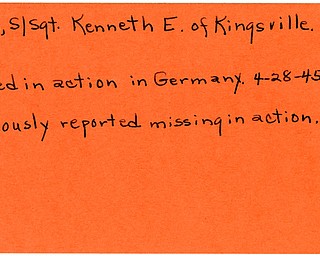 , S/Sgt. Kenneth E. of Kingsville.
ed in action in Germany. 4-28-45
ously reported missing in action.